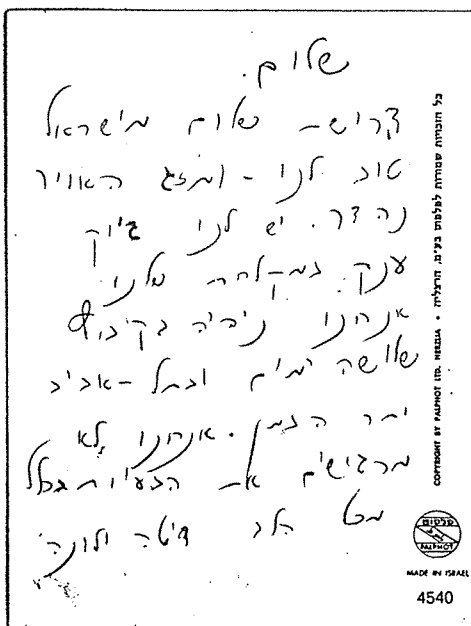 שלום.
דרישת שלום מישראל
טוב לנו - ומזג האוויר
נהדר. יש לנו ג'יוק
ענק במקלחת שלנו
אנחנו ניהיה בקיבוץ
שלושה ימים ובתל-אביב
יתר הזמן. אנחנו לא
מרגישים את הבעיות בכלל
הלב
כל הזכויות שמורות לפלפוט בע"מ, הרצליה • COPYRIGHT BY PALPHOT LTD. HERZLIA
פלפוט
PALPHOT
MADE IN ISRAEL
4540